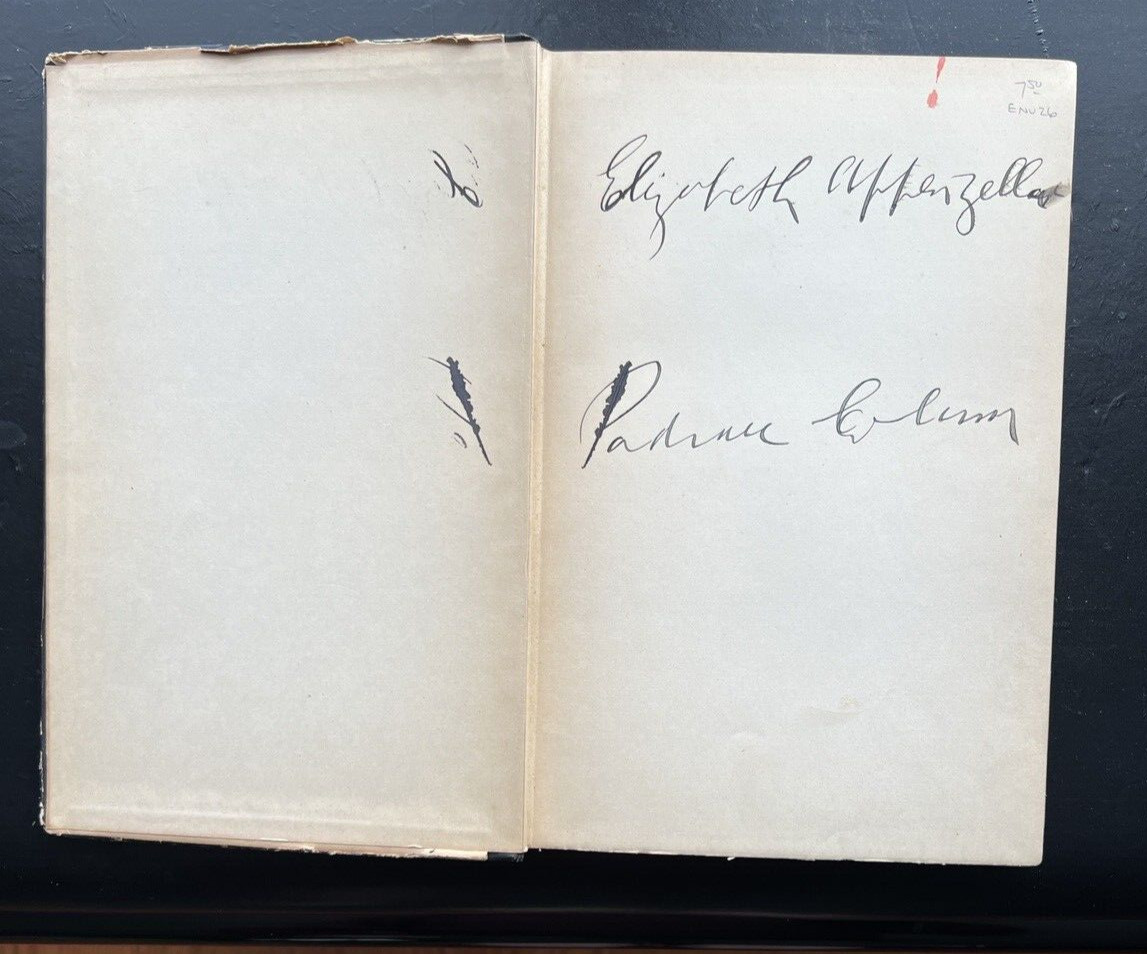 7 50
ENV26
Elizabeth Appenzellar
Padraic Colum